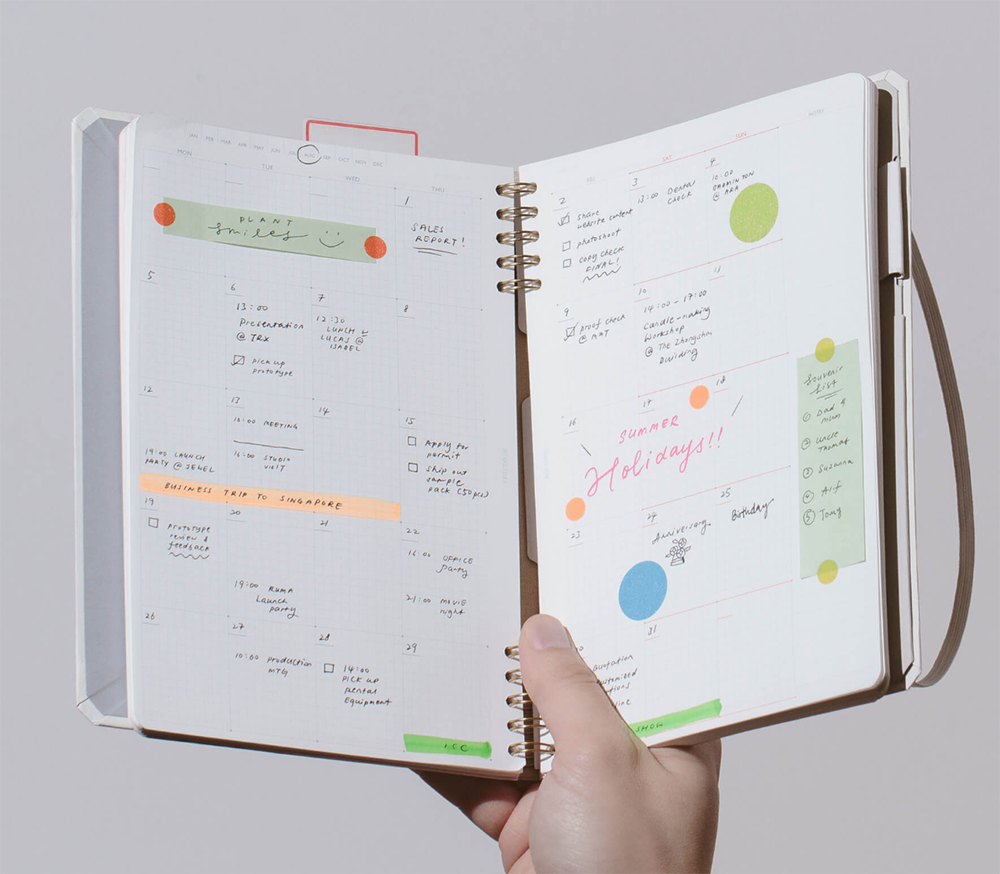 JAN FEB MAR APR MAY JUN JUL AUG SEP OCT NOV DEC
MON TUE WED THU
PLANT
smiles
1
SALES
REPORT!
5
6
13:00
Presentation
@ TRX
pick up
prototype
7
12:30
LUNCH
LUCAS @
ISABEL
8
12
19:00 LAUNCH
PARTY @ JEWEL
13
MEETING
16:00 STUDIO
VISIT
14
15
Apply for
permit
Ship out
sample
pack (50pcs)
BUSINESS TRIP TO SINGAPORE
19
prototype
review &
feedback
20
19:00 RUMA
Launch
party
21
22
16:00 OFFICE
Party
21:00 MOVIE
night
26
27
10:00 production
MTG
28
14:00
PICK UP
Rental
Equipment
29
FRI SAT SUN NOTES
2
Share
website content
photoshoot
copy check
FINAL!
3
13:00 Dental
check
4
10:00
BADMINTON
@ ARA
9
proof check
@ MAT
10
14:00 - 17:00
Candle-making
Workshop
@ The Zhongshan
Building
11
16
17
18
SUMMER
Holidays!!
23
24
Anniversary
25
Birthday
31
Quotation
SHOW
Souvenir
List
① Dad &
mum
② Uncle
Thomas
③ Suzanna
④ Aif
⑤ Tomy